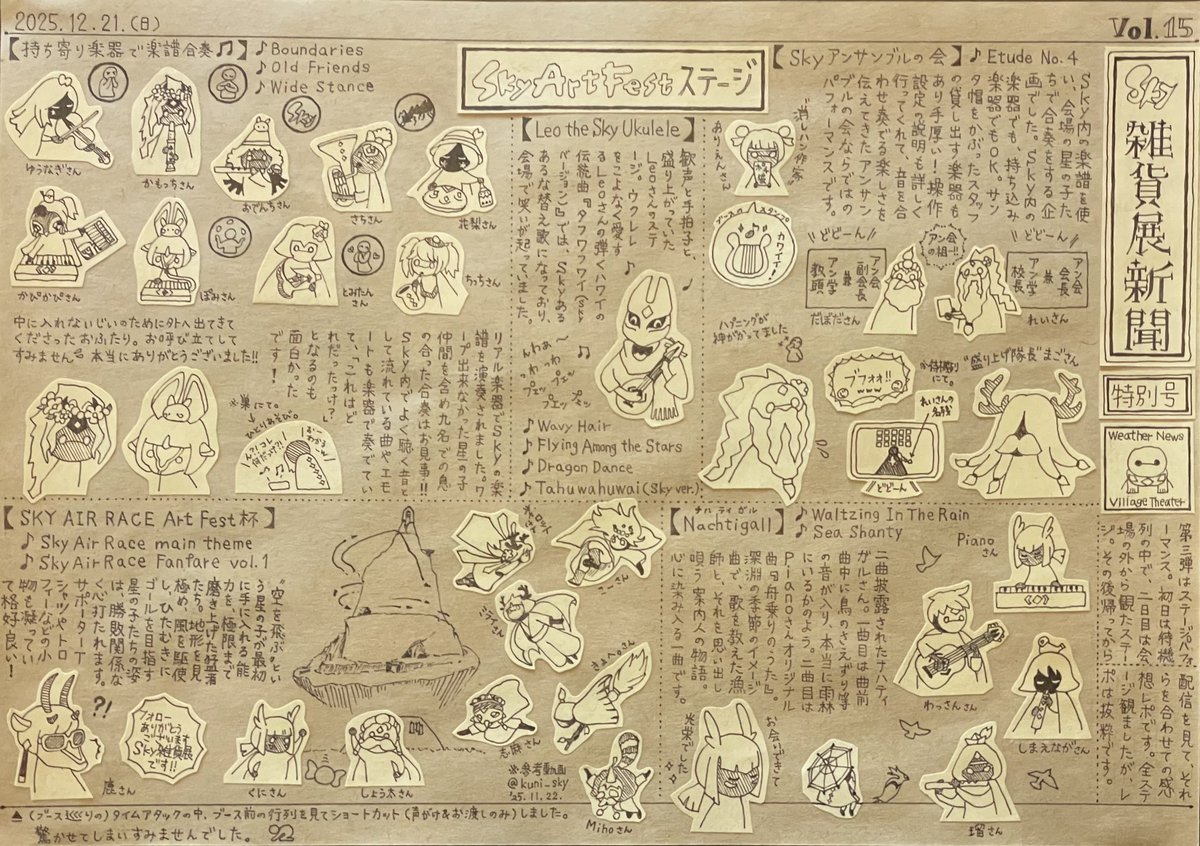 2025.12.21.(日)
Vol.15
Sky雑貨展新聞
特別号
Weather News
Village Theater
第三弾はステージパフォ
ーマンス。初日は待機
列の中で、二日目は会
場の外から観たステー
ジ。その後帰ってから
配信を見て、それ
らを合わせての感
想レポです。全ステ
ージ観ましたが、レ
ポは抜粋です。
Sky Art Fest ステージ
【持ち寄り楽器で楽譜合奏♫】
♪Boundaries
♪Old Friends
♪Wide Stance
ゆうなぎさん
かもっちさん
おでんちさん
さちさん
花梨さん
かぴかぴさん
ぽみさん
とみたんさん
ちっちさん
中に入れないじいのために外へ出てきて
くださったおふたり。お呼び立てして
すみません 本当にありがとうございました!!
リアル楽器でSkyの楽
譜を演奏されました。ワ
ープ出来なかった星の子
仲間を含め九名での息
の合った合奏はお見事!!
Sky内でよく聴く音と
して流れている曲やエモ
ートも楽器で奏でてい
て、「これはど
れだったっけ?」
となるのも
面白かった
です!
※巣にて。
ひとりあそび。
【Leo the Sky Ukulele】
歓声と手拍子と、
盛り上がっていた
Leoさんのステ
ージ。ウクレレ
をこよなく愛す
るLeoさんの弾くハワイの
伝統曲『タフワフワイ(Sky
バージョン)』では、Skyある
あるな替え歌になっており、
会場で笑いが起っていました。
♪Wavy Hair
♪Flying Among the Stars
♪Dragon Dance
♪Tahuwahuwai (Sky ver.)
【Skyアンサンブルの会】
♪Etude No.4
Sky内の楽譜を使
い、会場の星の子た
ちで合奏をする企
画でした。Sky内の
楽器でも、持ち込み
楽器でもOK。サン
タ帽をかぶったスタッフ
の貸し出す楽器も
あり手厚い!操作
設定の説明も詳しく
行ってくれて、音を合
わせ奏でる楽しさを
伝えてきたアンサン
ブルの会ならではの
パフォーマンスです。
"消しハン作家"
ありえんさん
ブースのスタンプ
カワイイ!
アン会
の祖…!!
\\どどーん//
アン会
副会長
兼
アン学
教頭
だぼださん
\\どどーん//
アン会
会長
兼
アン学
校長
れいさん
ハプニングが
神がかってました
ブフォオ!!
www
※待機列
にて。
"盛り上げ隊長"まごさん
れいさんの
名残
どどーん
【SKY AIR RACE Art Fest杯】
♪Sky Air Race main theme
♪Sky Air Race Fanfare vol.1
"空を飛ぶ"とい
う星の子が最初
に手に入れる能
力を、極限まで
磨き上げた猛者
たち。地形を見
極め、風を駆使
し、ひたむきに
ゴールを目指す
星の子たちの姿
は、勝敗関係な
く心打たれます。
サポーターT
シャツやトロ
フィーなどの小
物も凝ってい
て格好良い!
?!
鹿さん
フォロー
ありがとう
ございます
Sky雑貨展
です!!
くにさん
しょう太さん
キャロットさん
こーさん
ミライさん
きょへぇさん
志麻さん
※参考動画
@kuni_sky
'25.11.22.
Mihoさん
【Nachtigall】
ナハティガル
♪Waltzing In The Rain
♪Sea Shanty
二曲披露されたナハティ
ガルさん。一曲目は曲前
曲中に鳥のさえずり等
の音が入り、本当に雨林
にいるかのよう。二曲目は
Pianoさんオリジナル
曲『舟乗りのうた』。
深淵の季節のイメージ
曲で、歌を教えた漁
師と、それを思い出し
唄う案内人の物語。
心に染み入る一曲です。
Pianoさん
わっさんさん
しまえながさん
瑠さん
お会いできて
光栄でした
▲(ブース巡りの)タイムアタックの中、ブース前の行列を見てショートカット(声がけ&お渡しのみ)しました。
驚かせてしまいすみませんでした。